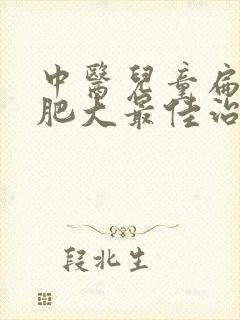 中醫兒童扁
肥大最佳治
段北生